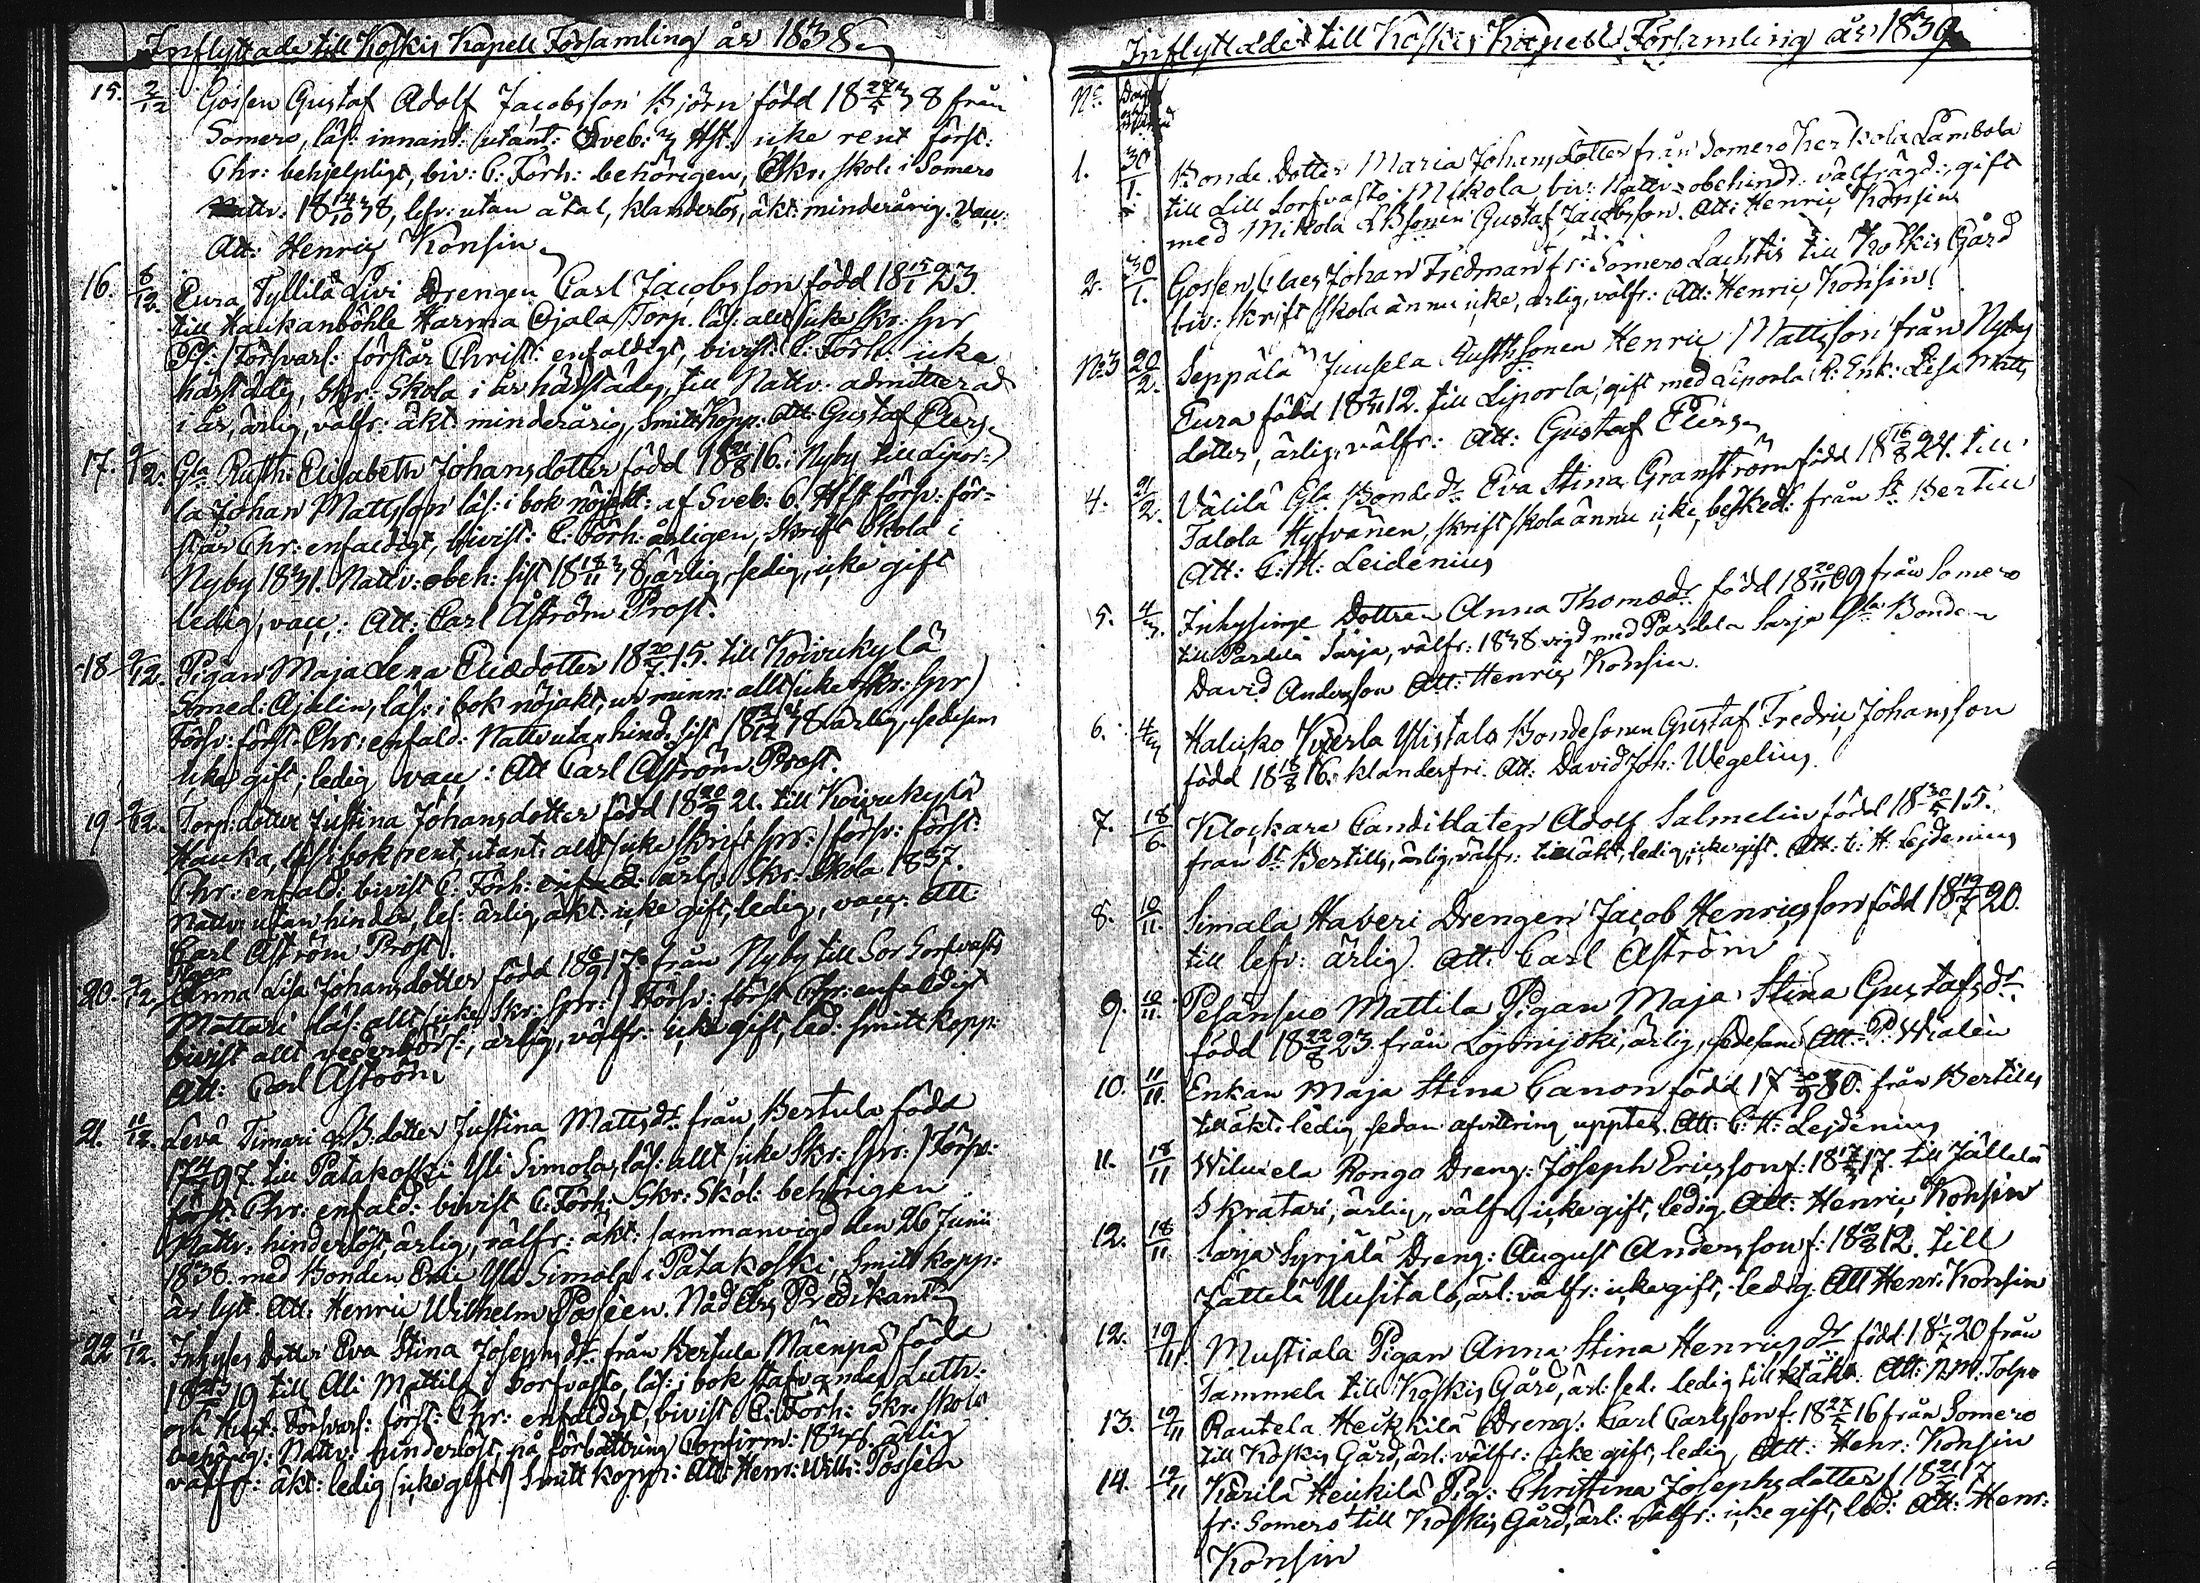 Inflyttade till Koskis Kapell Församling år 1838.
15. 2/12 Gossen Gustaf Adolf Jacobsson Björn född 18 27/5 38 från
Somero, läs: innant: utant: Sveb: Hft: icke rent först:
Chr: behjelpligt, biv: C: Förh: behörigen, Skr: skol: i Somero
Nattv: 18 14/10 38, lefv: utan åtal, klanderlös, äkt: minderårig. Vacc:
Att: Henric Konsin
16. 8/12. Eura Tyllilä Livi Drengen Carl Jacobsson född 18 15/1 23.
till Haukanböhle Harma Ojala Torp. läs: allt (icke Skr: spr
Ps:) Försvarl: förstår Christ: enfaldigt, bivist: C: Förh: icke
härstädes, Skr: Skola i år härstädes, till Nattv. admitterad
i år, ärlig, välfr: äkt: minderårig, Smittkopp: Att: Gustaf Elers
17. 9/12. Gla Rusth: Elisabeth Johansdotter född 18 21/8 16. i Nyby till Lipor-
la Johan Mattsson läs: i bok nöjakt: af Sveb: C. Hft försv: för-
står Chr: enfaldigt, bivist: C: Förh: årligen, Skrift Skola i
Nyby 1831. Nattv: obeh: sist 18 18/11 38, ärlig, sedig, icke gift
ledig, vacc: Att: Carl Åström Prost.
18 9/12. Pigan Maja Lena Eliædotter 18 20/7 15. till Koivukylä
Smed: Ajalin, läs: i bok nöjakt, ur minn: allt (icke Skr: spr)
Försv: först: Chr: enfald: Nattv utan hind: sist 18 2/12 38 ärlig, sedesam
icke gift, ledig vacc: Att Carl Åström Prost.
19 9/12. Torp: dotter Justina Johansdotter född 18 20/9 21. till Koivukylä
Hauka, läs: i bok rent, utant: allt (icke Skrift spr:) försv: först:
Chr: enfald: bivist C: Förh: enfald: årl: Skr: Skola 1837.
Nattv: utan hinder, lef: ärlig, äkt: icke gift, ledig, vacc: Att
Carl Åström Prost.
Pigan
20. 9/12. Anna Lisa Johansdotter född 18 6/9 17. från Nyby till Sor Sorfvasto
Mattari läs: allt (icke Skr: spr:) Försv: först Chr: enfaldigt
bivist allt vederbörl:, ärlig, välfr: icke gift, led: smittkopp:
Att: Carl Åström
21. 11/12. Levä Timari B: dotter Justina Mattsdr från Bertula född
17 4/ 97. till Patakoski Yli Simola, läs: allt (icke Skr: spr:) Försv:
först: Chr: enfald: bivist C: Förh: Skr: Skol: behörigen
Nattv: hinderlöst, ärlig, välfr: äkt: sammanvigd den 26 Junii
1838. med Bonden Eric Yli Simola i Patakoski, Smittkopp:
är lytt. Att: Henric Wilhelm Posseen. Nådårs Predikant
22 11/12. Inhyses Dotter Eva Stina Josephsdr från Bertula Mäenpä född
18 19 till Ali Mattila i Sorfvasto, läs: i bok stafvandes Luth:
och Hust: Försvarl: först: Chr: enfaldigt, bivist C: Förh: Skr: skola
behörig: Nattv: hinderlöst, på förbättring Confirm: ärlig
välfr: äkt: ledig (icke gift) Smittkopp: Att: Henr: Wilh: Posseen
Inflyttade till Koskis Kapell Församling år 1839.
No.
1. 30/1. Bonde Dotter Maria Johansdotter från Somero Kerkola Lambola
till Lill Sorfvasto Mikola biv: Nattv: obehindr: välfrägd:, gift
med Mikola Sonen Gustaf Jacobsson. Att: Henric Konsin
2. 30/1. Gossen Claes Johan Fredman fr: Somero Lachtis till Koskis Gård
biv: Skrift skola ännu icke, ärlig, välfr: Att: Henric Konsin
No 3 20/2. Seppälä Juusela Rusthsonen Henric Mattsson från Nyby
Eura född 18 12. till Liporla, gift med Liporla R: Enk: Lisa Matts
dotter, ärlig, välfr: Att: Gustaf Elers
4. 21/2. Välilä Gla Bondedr Eva Stina Granström född 18 16/8 24. till
Talola Hyfvänen, skrift skola ännu icke, besked: från St Bertill
Att: C: H: Leidenius
5. 4/3. Inhysinge Dottren Anna Thomædr född 18 20/11 09 från Somero
till Pardela Sarja, välfr: 1838 vigd med Pardela Sarja Gla Bonden
David Andersson Att: Henric Konsin.
6. 4/3 Haluko Kyerla Ylistalo Bondesonen Gustaf Fredric Johansson
född 18 18/8 16. klanderfri. Att: David Joh: Wegelius.
7. 18/6. Klockare Candidaten Adolf Salmelin född 18 30/5 15.
från St Bertills, ärlig, välfr: till äkt, ledig, icke gift. Att: C: H: Lejdenius
8. 10/11. Simala Haveri Drengen Jacob Henricsson född 18 19/7 20.
till lefv: ärlig. Att: Carl Åström
9. 10/11. Pesänsuo Mattila Pigan Maja Stina Gustafsdr
född 18 22/8 23. från Lojmijoki, ärlig, sedesam Att: P: Widlen
10. 11/11. Enkan Maja Stina Canon född 17 80. från Bertills
till äkt: ledig sedan afvittring upptes. Att: C: H: Lejdenius
11. 18/11 Wiluela Rongo Dreng: Joseph Ericsson f: 18 17. till Jällelä
Skratari, ärlig, välfr, icke gift, ledig. Att: Henric Konsin
12. 18/11 Sarja Syrjälä Dreng: August Andersson f: 18 10/8 12. till
Jättelä Uusitalo, ärl: välfr: icke gift, ledig. Att Henr: Konsin
12. 19/11 Mustiala Pigan Anna Stina Henricsdr född 18 1/7 20 från
Tammela till Koskis Gård, ärl: sed: ledig till äkt: Att: N. M: Tolpo
13. 19/11 Rautela Heikkilä Dreng: Carl Carlsson f: 18 27/5 16 från Somero
till Koskis Gård, ärl: välfr: icke gift, ledig, Att: Henr: Konsin
14. 19/11 Karilä Heikilä Pig: Christina Josephsdotter f: 18 21/ 17
fr: Somero till Koskis Gård, ärl: välfr: icke gift, led: Att: Henr:
Konsin